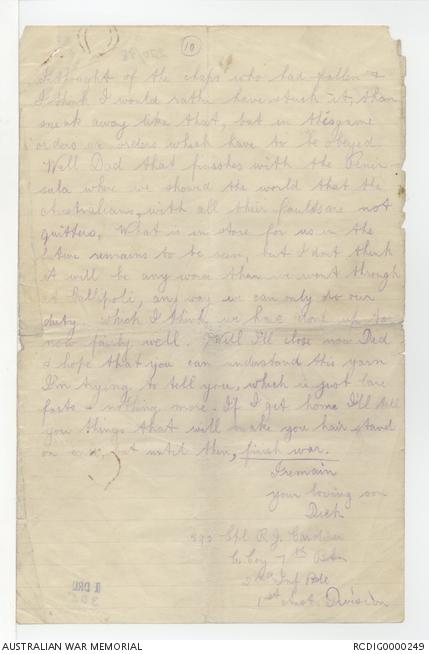 10
I thought of the chaps who had fallen &
I think I would rather have stuck it, than
sneak away like that, but in this game
orders are orders which have to be obeyed.
Well Dad that finishes with the Penin-
sula where we showed the world that the
Australians, with all their faults are not
quitters. What is in store for us in the
future remains to be seen, but I dont think
it will be any worse than we went through
at Gallipoli, any way we can only do our
duty which I think we have done up to
now fairly well. Well I'll close now Dad
& hope that you can understand this yarn
I'm trying to tell you, which is just bare
facts & nothing more. If I get home I'll tell
you things that will make you hair stand
on end, but until then, finish war.
I remain
your loving son
Dick
Cpl R. J.
C. Coy 7th Btn
2nd Inf Bde
1st Aust. Division
1 DRL
AUSTRALIAN WAR MEMORIAL
RCDIG0000249